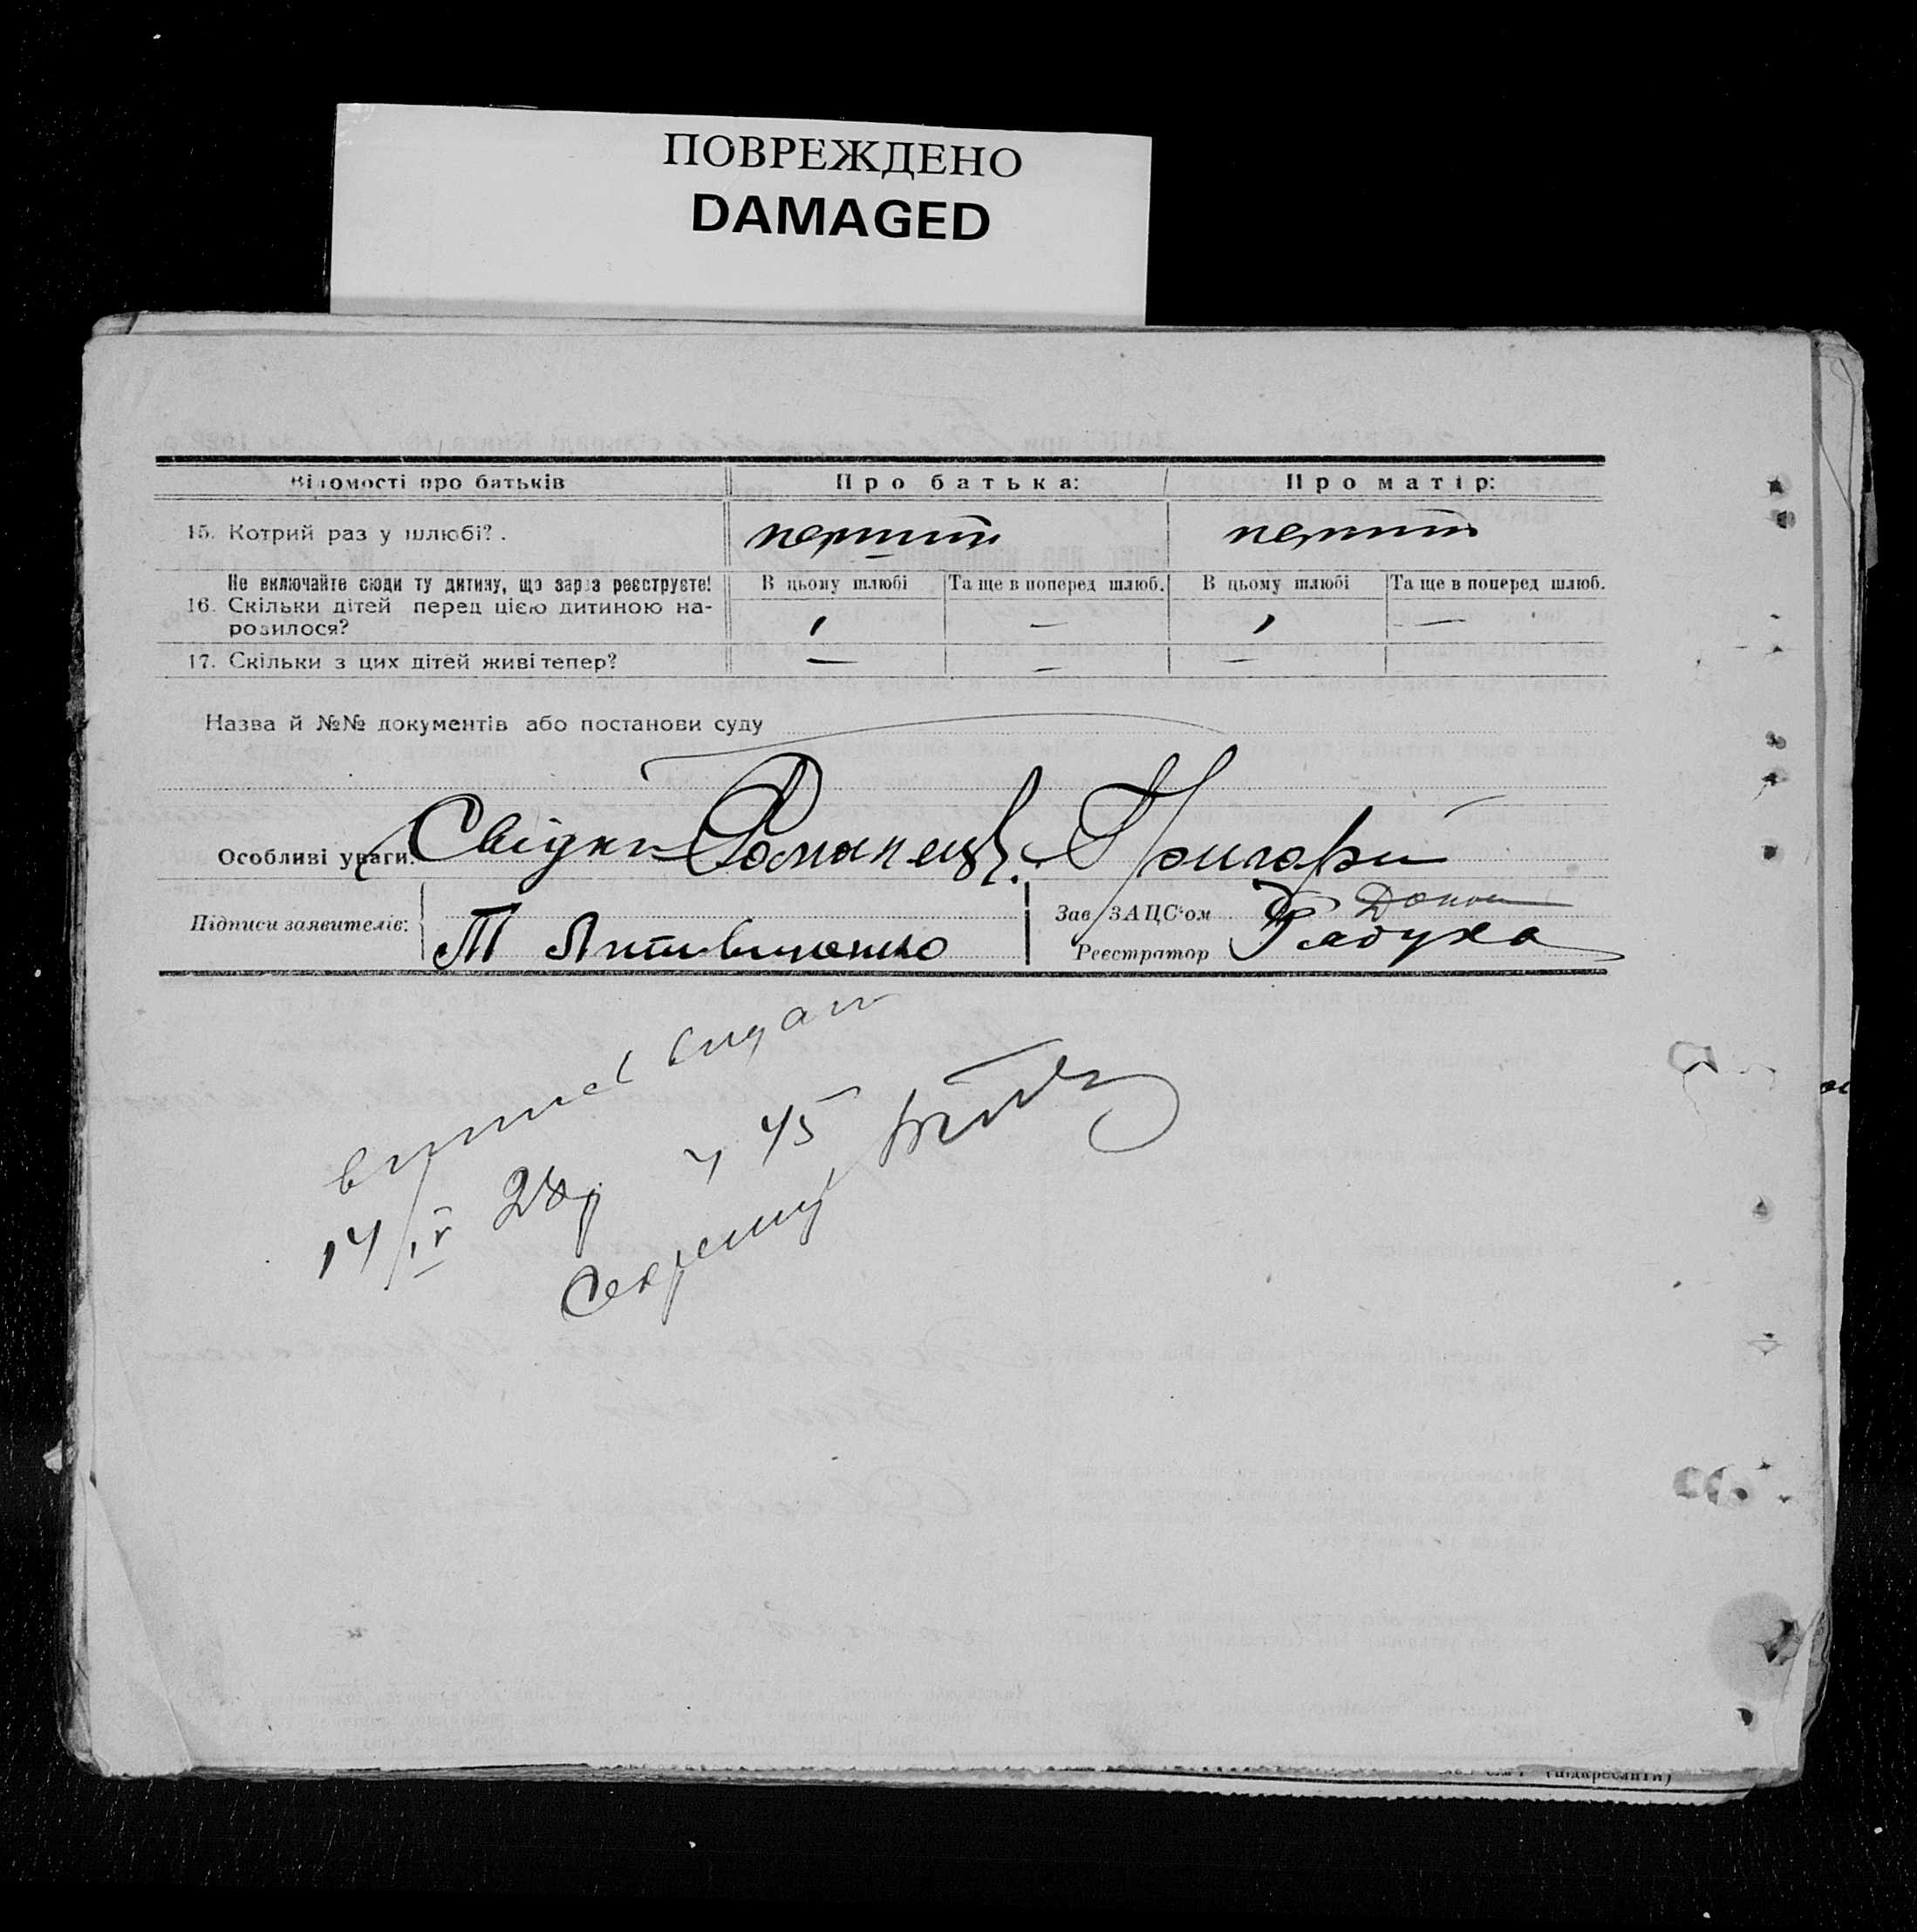 ПОВРЕЖДЕНО
DAMAGED
Відомості про батьків Про батька: Про матір:
15. Котрий раз у шлюбі? . перший перший
Не включайте сюди ту дитину, що зараз реєструєте! В цьому шлюбі Та ще в поперед шлюб. В цьому шлюбі Та ще в поперед шлюб.
16. Скільки дітей перед цією дитиною на-
родилося? 1 — 1 —
17. Скільки з цих дітей живі тепер? — — —
Назва й №№ документів або постанови суду
Особливі уваги: Свідки Романец. Григори
Підписи заявителів: Зав. ЗАЦС'ом
Т Литвиненко Реєстратор Рябуха
витяг видан
14/IV 28р 45
Секретарь
(підкреслити)